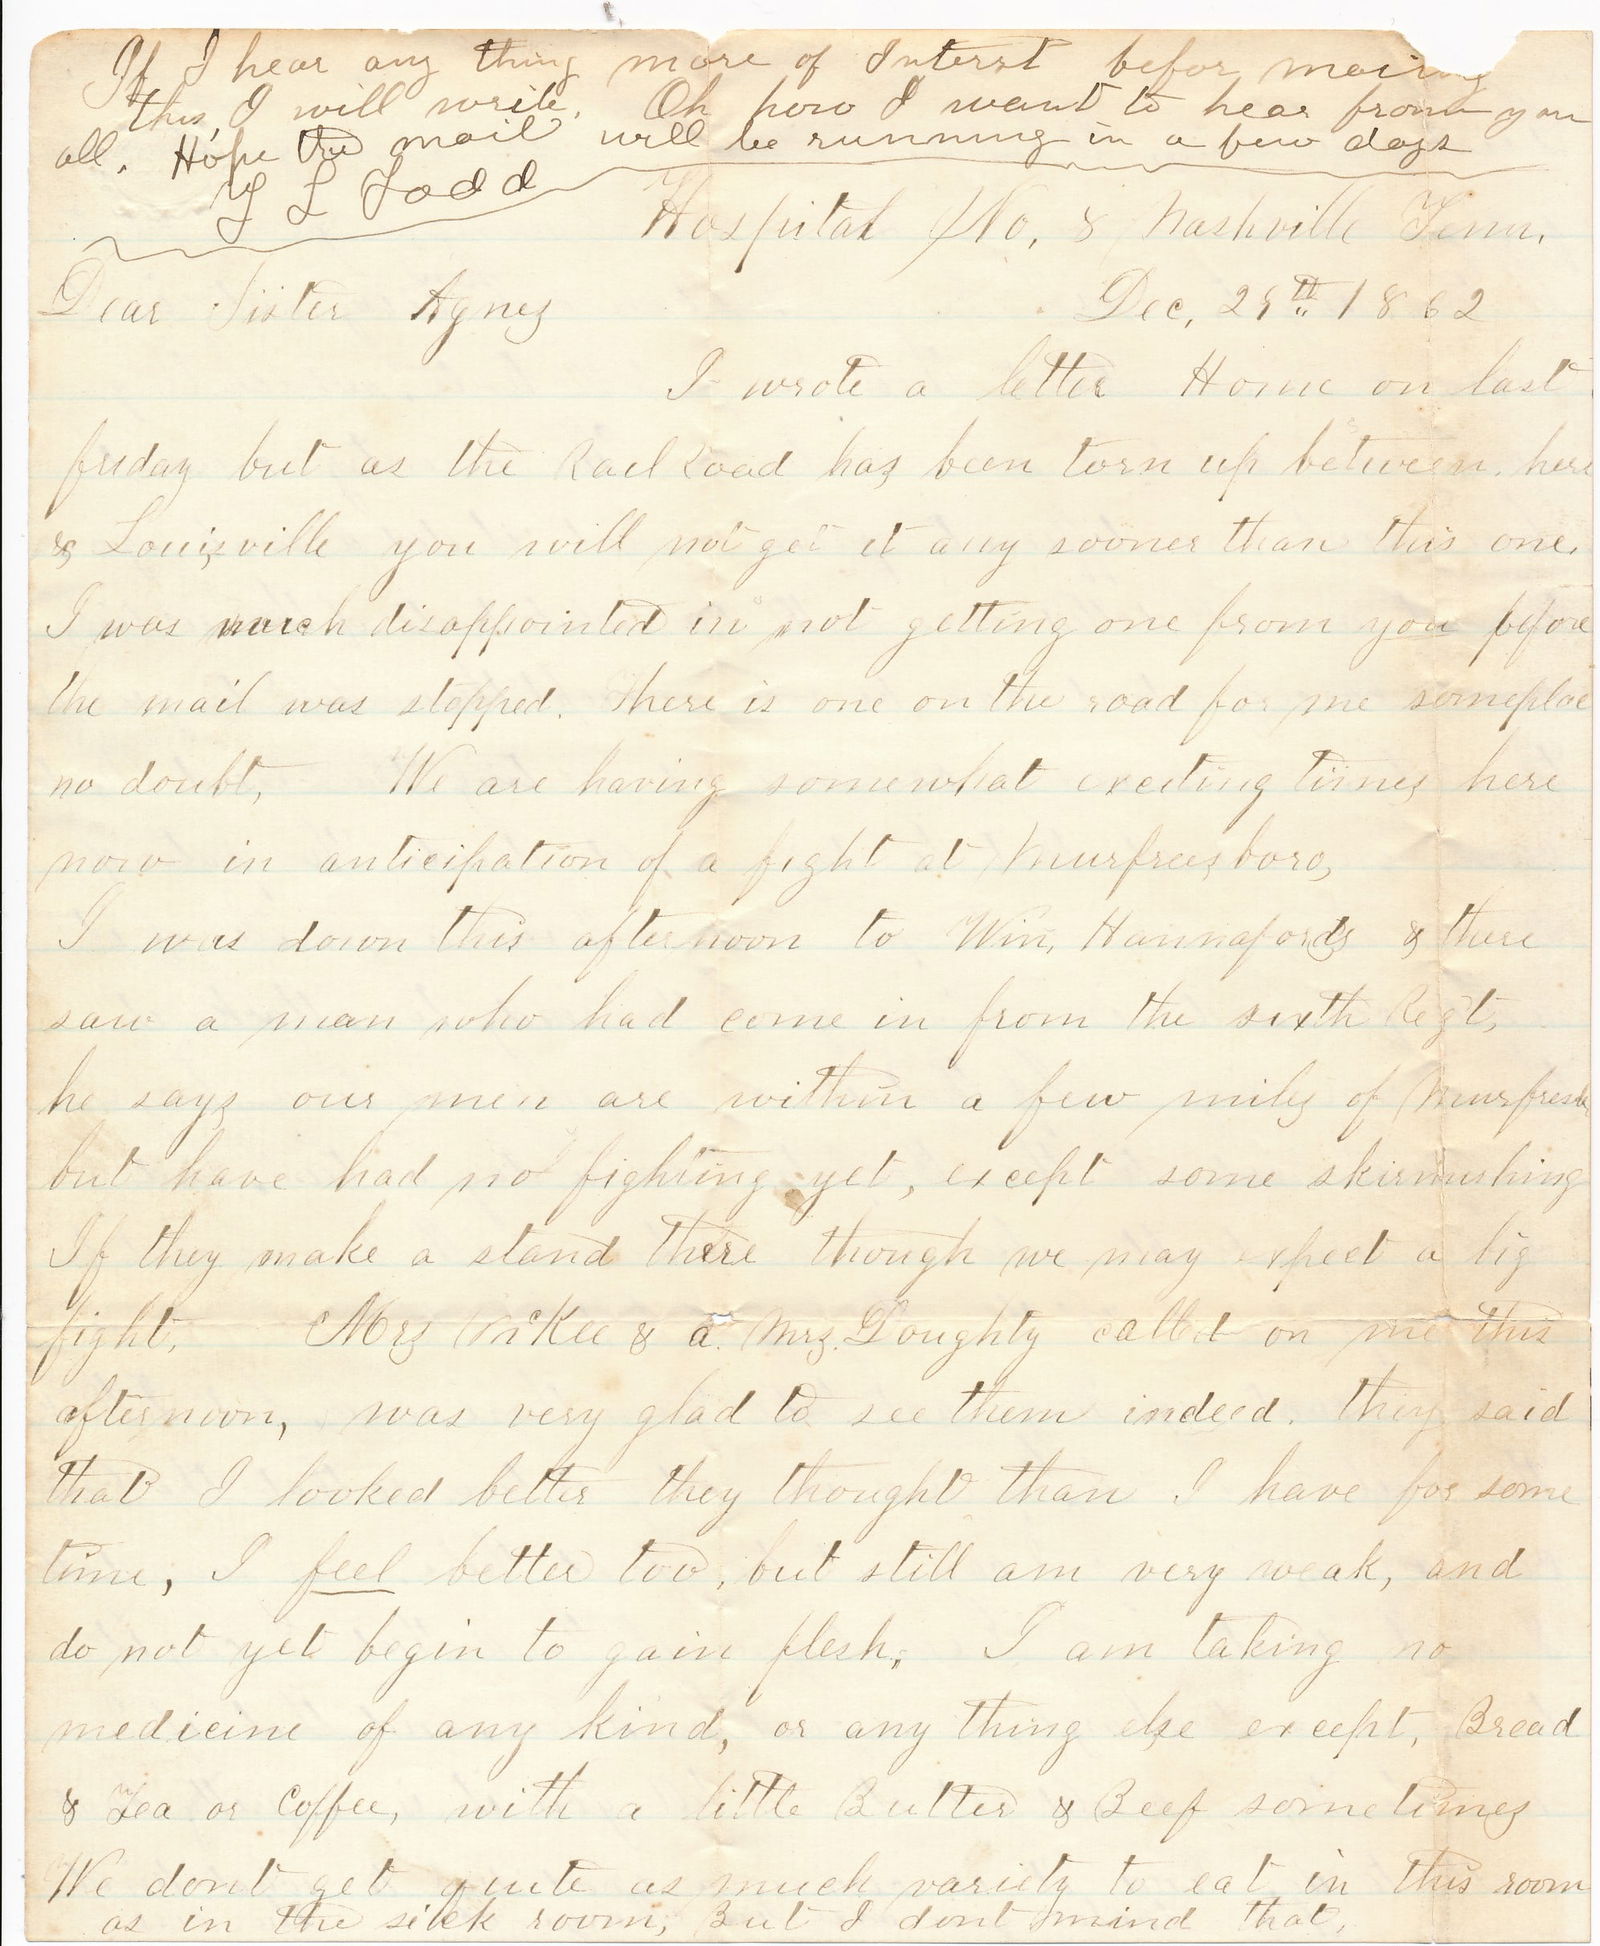 If I hear any thing more of Interest befor mailing
this, I will write. Oh how I want to hear from you
all. Hope the mail will be running in a few days
L Todd
Hospital No, 8 Nashville Tenn,
Dear Sister Agnes
Dec, 29th 1862
I wrote a letter Home on last
friday but as the Rail Road has been torn up between here
& Louisville you will not get it any sooner than this one,
I was much disappointed in not getting one from you before
the mail was stopped. There is one on the road for me someplac
no doubt, We are having somewhat exciting times here
now in anticipation of a fight at Murfreesboro,
I was down this afternoon to Win, Hannafords & there
saw a man who had come in from the sixth Regt,
he says our men are within a few miles of
but have had no fighting yet, except some skirmishing
If they make a stand there though we may expect a big
fight, Mrs McKee & a Mrs. Doughty called on me this
afternoon, was very glad to see them indeed. they said
that I looked better they thought than I have for some
time, I feel better too, but still am very weak, and
do not yet begin to gain flesh, I am taking no
medicine of any kind, or any thing else except, Bread
& Tea or Coffee, with a little Butter & Beef sometimes
We dont get quite as much variety to eat in this room
as in the sick room, But I dont mind that,